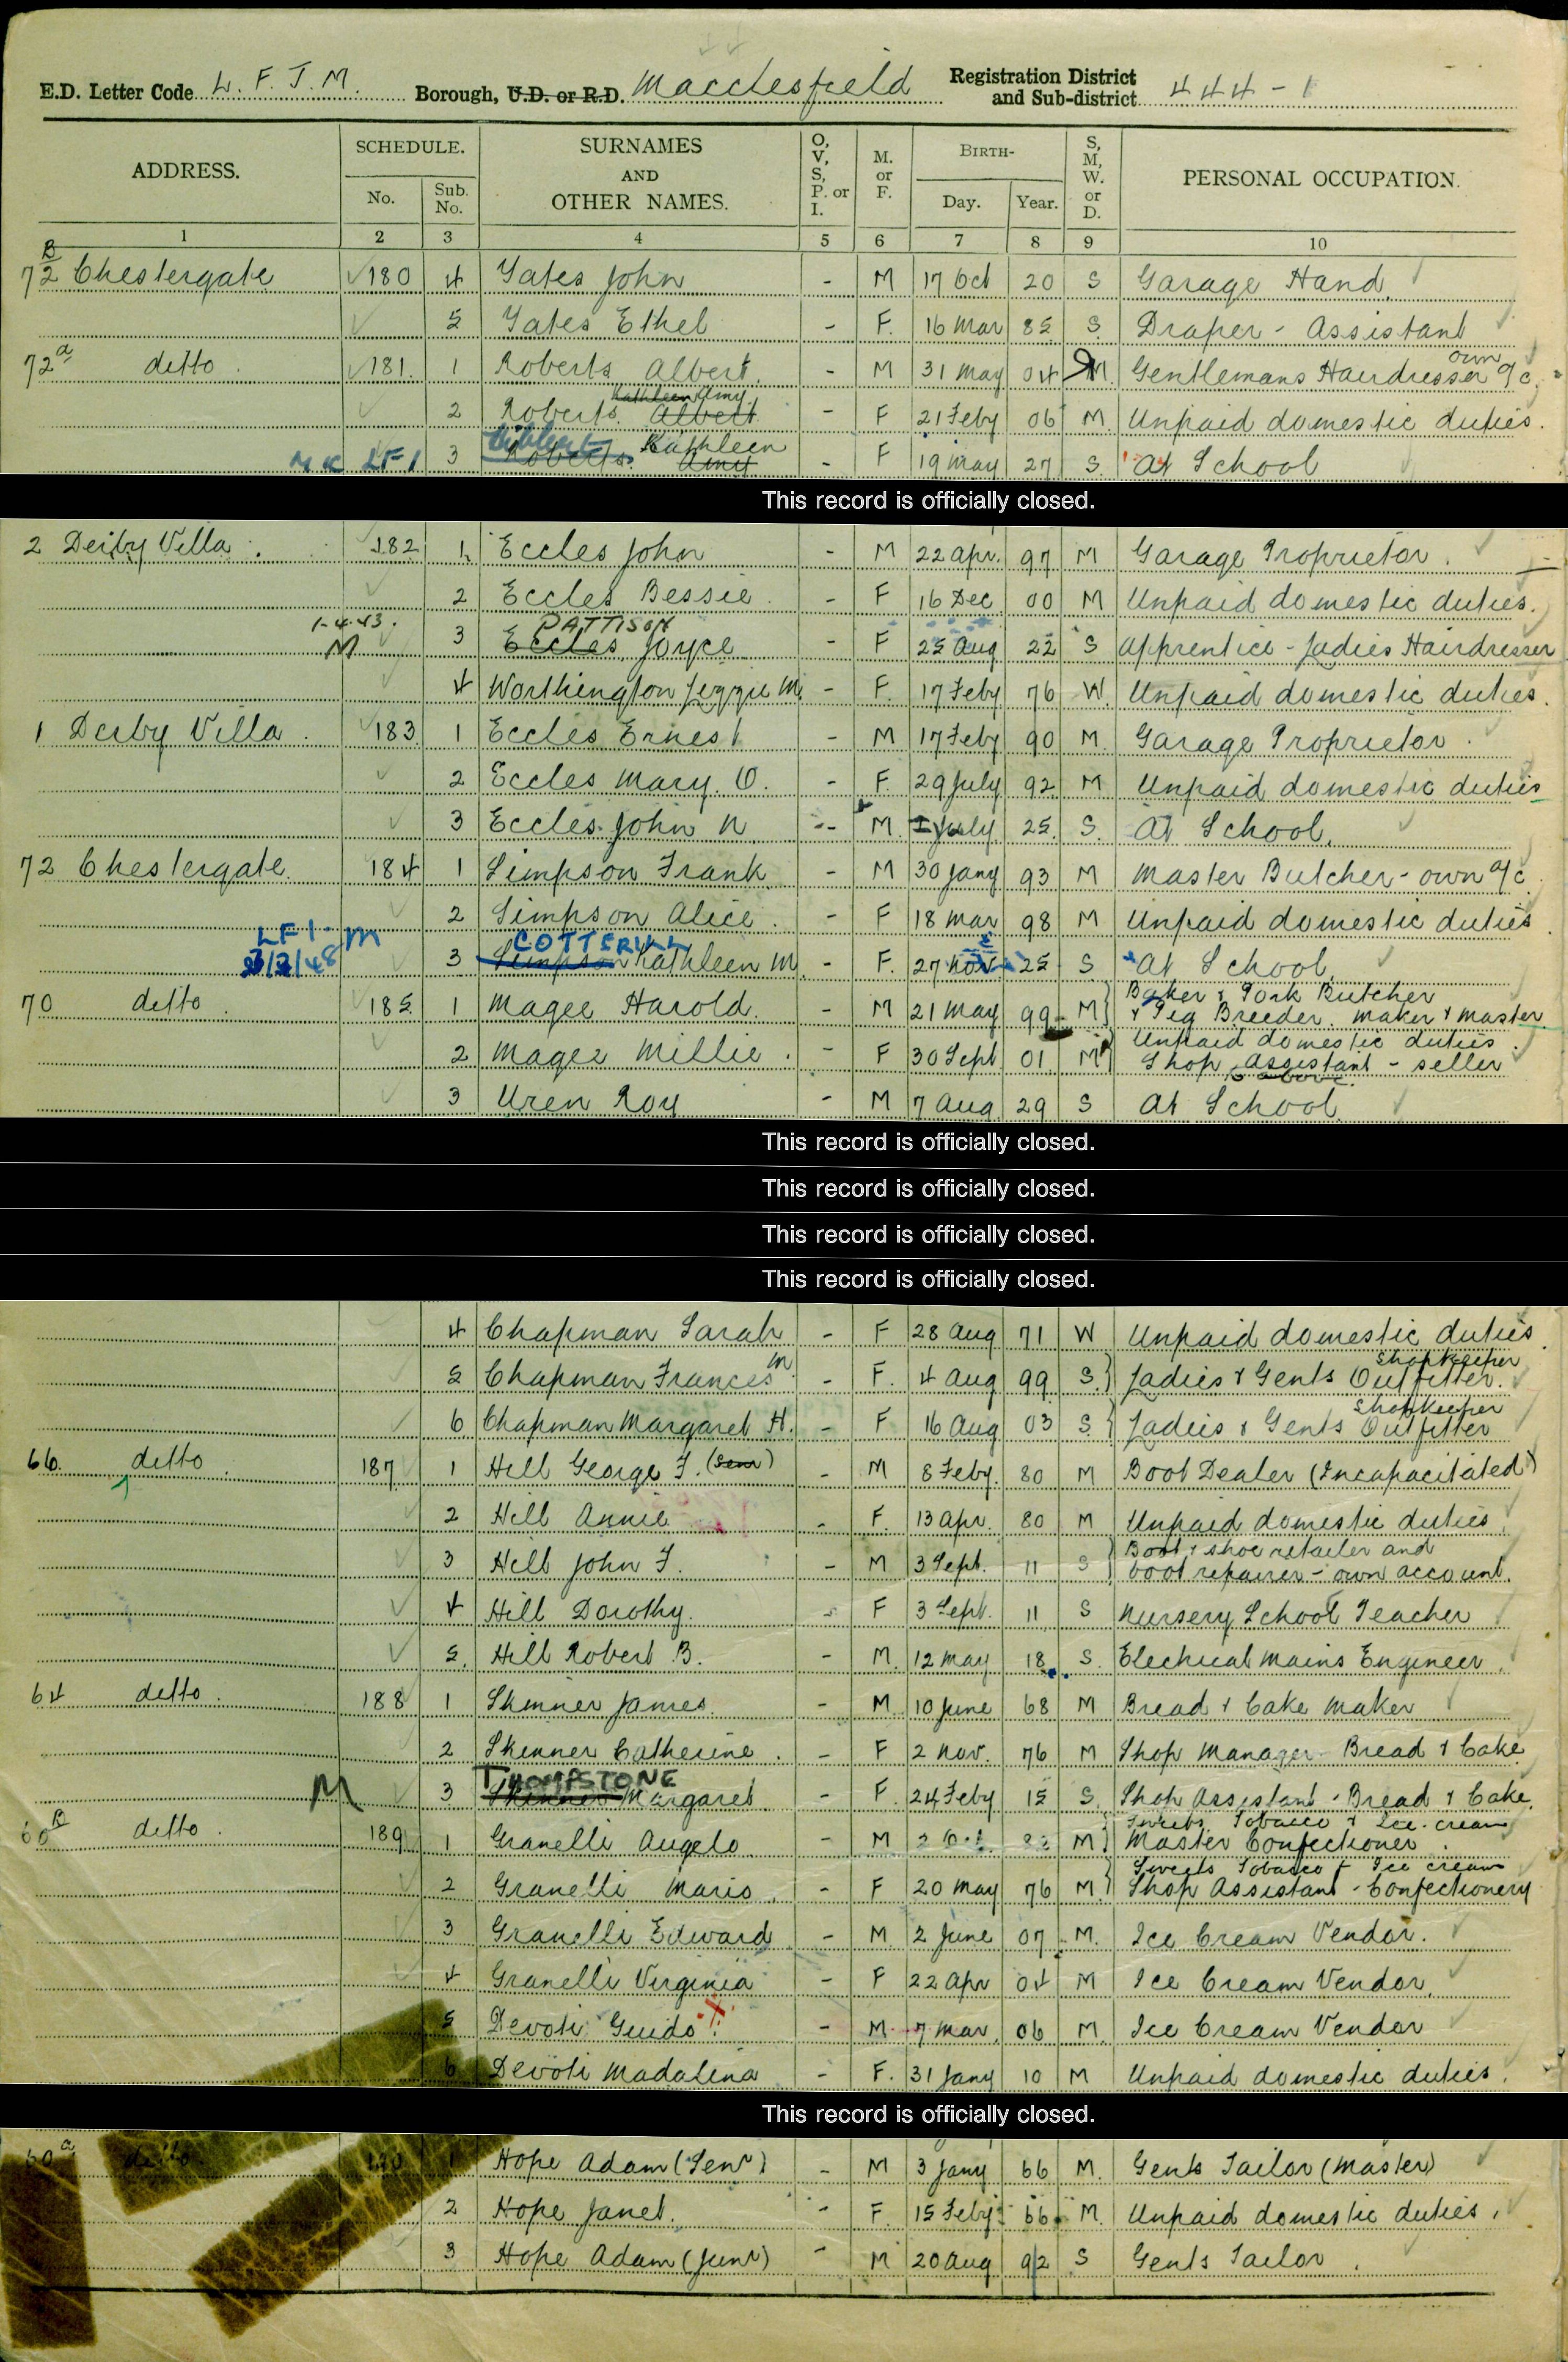 E.D. Letter Code L. F. J. M. Borough, U.D. or R.D. Macclesfield Registration District and Sub-district 444 - 1
ADDRESS. SCHEDULE. No. Sub. No. SURNAMES AND OTHER NAMES. O, V, S, P. or I. M. or F. BIRTH- Day. Year. S, M, W. or D. PERSONAL OCCUPATION.
1 2 3 4 5 6 7 8 9 10
72 B Chestergate 180 4 Yates John - M 17 Oct 20 S Garage Hand.
5 Yates Ethel - F. 16 Mar 85 S. Draper - Assistant
72a ditto. 181. 1 Roberts Albert. - M 31 May 04 M. Gentlemans Hairdresser own a/c.
2 Roberts. Albert Kathleen Amy. - F 21 Feby 06 M. Unpaid domestic duties.
MK LF1 3 Roberts. Amy Kathleen - F 19 May 27 S. At School
This record is officially closed.
2 Derby Villa. 182 1. Eccles John - M 22 Apr. 97 M Garage Proprietor.
2 Eccles Bessie. - F 16 Dec 00 M Unpaid domestic duties.
1-4-43. M 3 Eccles PATTISON Joyce - F 25 Aug 22 S Apprentice - Ladies Hairdresser
4 Worthington Lizzie M. - F. 17 Feby 76 W. Unpaid domestic duties.
1 Derby Villa. 183. 1 Eccles Ernest - M 17 Feby 90 M. Garage Proprietor.
2 Eccles Mary. O. - F. 29 July 92. M. Unpaid domestic duties
3 Eccles. John N. - M. July 25. S. At School.
72 Chestergate. 184 1 Simpson Frank. - M 30 Jany 93 M Master Butcher - own a/c.
2 Simpson Alice. - F 18 Mar 98 M Unpaid domestic duties.
LF1. M 3 Simpson COTTERILL Kathleen M. - F. 27 Nov 25 S At School.
70 ditto. 185. 1 Magee Harold. - M 21 May 99 M Baker & Pork Butcher & Pig Breeder. maker & master
2 Magee Millie. - F 30 Sept 01. M Unpaid domestic duties. Shop assistant - seller
3 Uren Roy - M 7 Aug 29 S At School.
This record is officially closed.
This record is officially closed.
This record is officially closed.
This record is officially closed.
4 Chapman Sarah - F 28 Aug 71 W Unpaid domestic duties.
5 Chapman Frances M. - F. 4 Aug 99 S. Ladies & Gents Outfitter. Shopkeeper
6 Chapman Margaret H. - F 16 Aug 03 S. Ladies & Gents Outfitter Shopkeeper
66. ditto. 187 1 Hill George F. (Senr) - M 8 Feby. 80 M Boot Dealer (Incapacitated)
2 Hill Annie - F. 13 Apr. 80 M Unpaid domestic duties.
3 Hill John F. - M 3 Sept. 11 S Boot & shoe retailer and boot repairer - own account.
4 Hill Dorothy. - F 3 Sept. 11 S Nursery School Teacher
5. Hill Robert B. - M. 12 May 18 S. Electrical Mains Engineer.
64 ditto. 188 1 Skinner James. - M. 10 June 68 M Bread & Cake Maker
2 Skinner Catherine. - F 2 Nov. 76 M Shop Manager - Bread & Cake
M 3 Skinner THOMPSTONE Margaret. - F. 24 Feby 15 S. Shop Assistant - Bread & Cake.
60B ditto. 189 1 Granelli Angelo - M M Sweets Tobacco & Ice-cream Master Confectioner.
2 Granelli Maria. - F 20 May 76 M. Sweets Tobacco & Ice cream Shop Assistant - Confectionery
3 Granelli Edward - M. 2 June 07 M. Ice Cream Vendor.
4 Granelli Virginia - F 22 Apr 04 M Ice Cream Vendor.
5 Devoti Guido - M. 7 Mar. 06 M. Ice Cream Vendor
6 Devoti Madalina - F. 31 Jany 10 M Unpaid domestic duties.
This record is officially closed.
60a ditto. 190 1 Hope Adam (Senr) - M 3 Jany 66 M. Gents Tailor (Master)
2 Hope Janet. - F. 15 Feby. 66. M. Unpaid domestic duties.
3 Hope Adam (Junr) - M 20 Aug 92 S Gents Tailor.